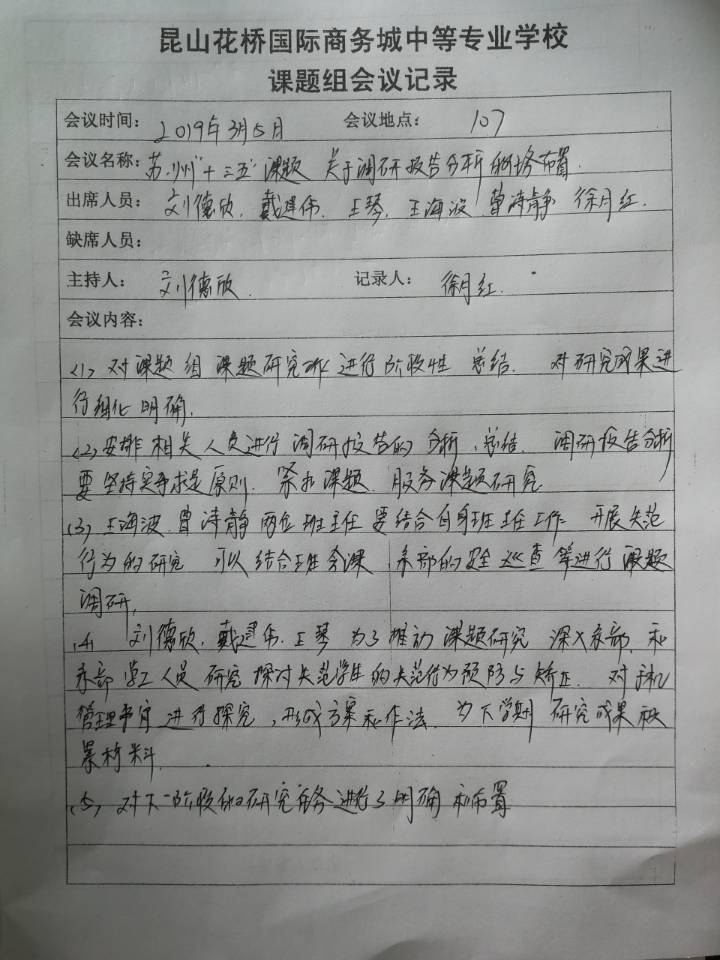 昆山花桥国际商务城中等专业学校
课题组会议记录
会议时间： 2019年3月5日 会议地点： 107
会议名称：苏州"十三五"课题 关于调研报告分析的布置
出席人员： 刘德欣、戴建伟、王琴、王海波 曾诗静 徐月红.
缺席人员：
主持人： 刘德欣. 记录人： 徐月红.
会议内容：
(1)、对课题组 课题研究 进行阶段性 总结. 对研究成果进
行细化 明确.
(2)安排 相关人员进行 调研报告的 分析、总结. 调研报告分析
要坚持实事求是原则. 紧扣课题. 服务课题研究
(3)、王海波、曾诗静 两位班主任 要结合自身班主任工作 开展失范
行为的研究 可以结合班会课、系部的安全巡查 等进行 课题
调研,
(4) 刘德欣、戴建伟、王琴 为了推动 课题研究 深入系部、和
系部 学工人员 研究 探讨失范学生的失范行为预防与矫正. 对手机
管理 进行探究, 形成方案和作法. 为下学期 研究成果积
累材料.
(5)、对下一阶段的研究任务进行了明确 和布置